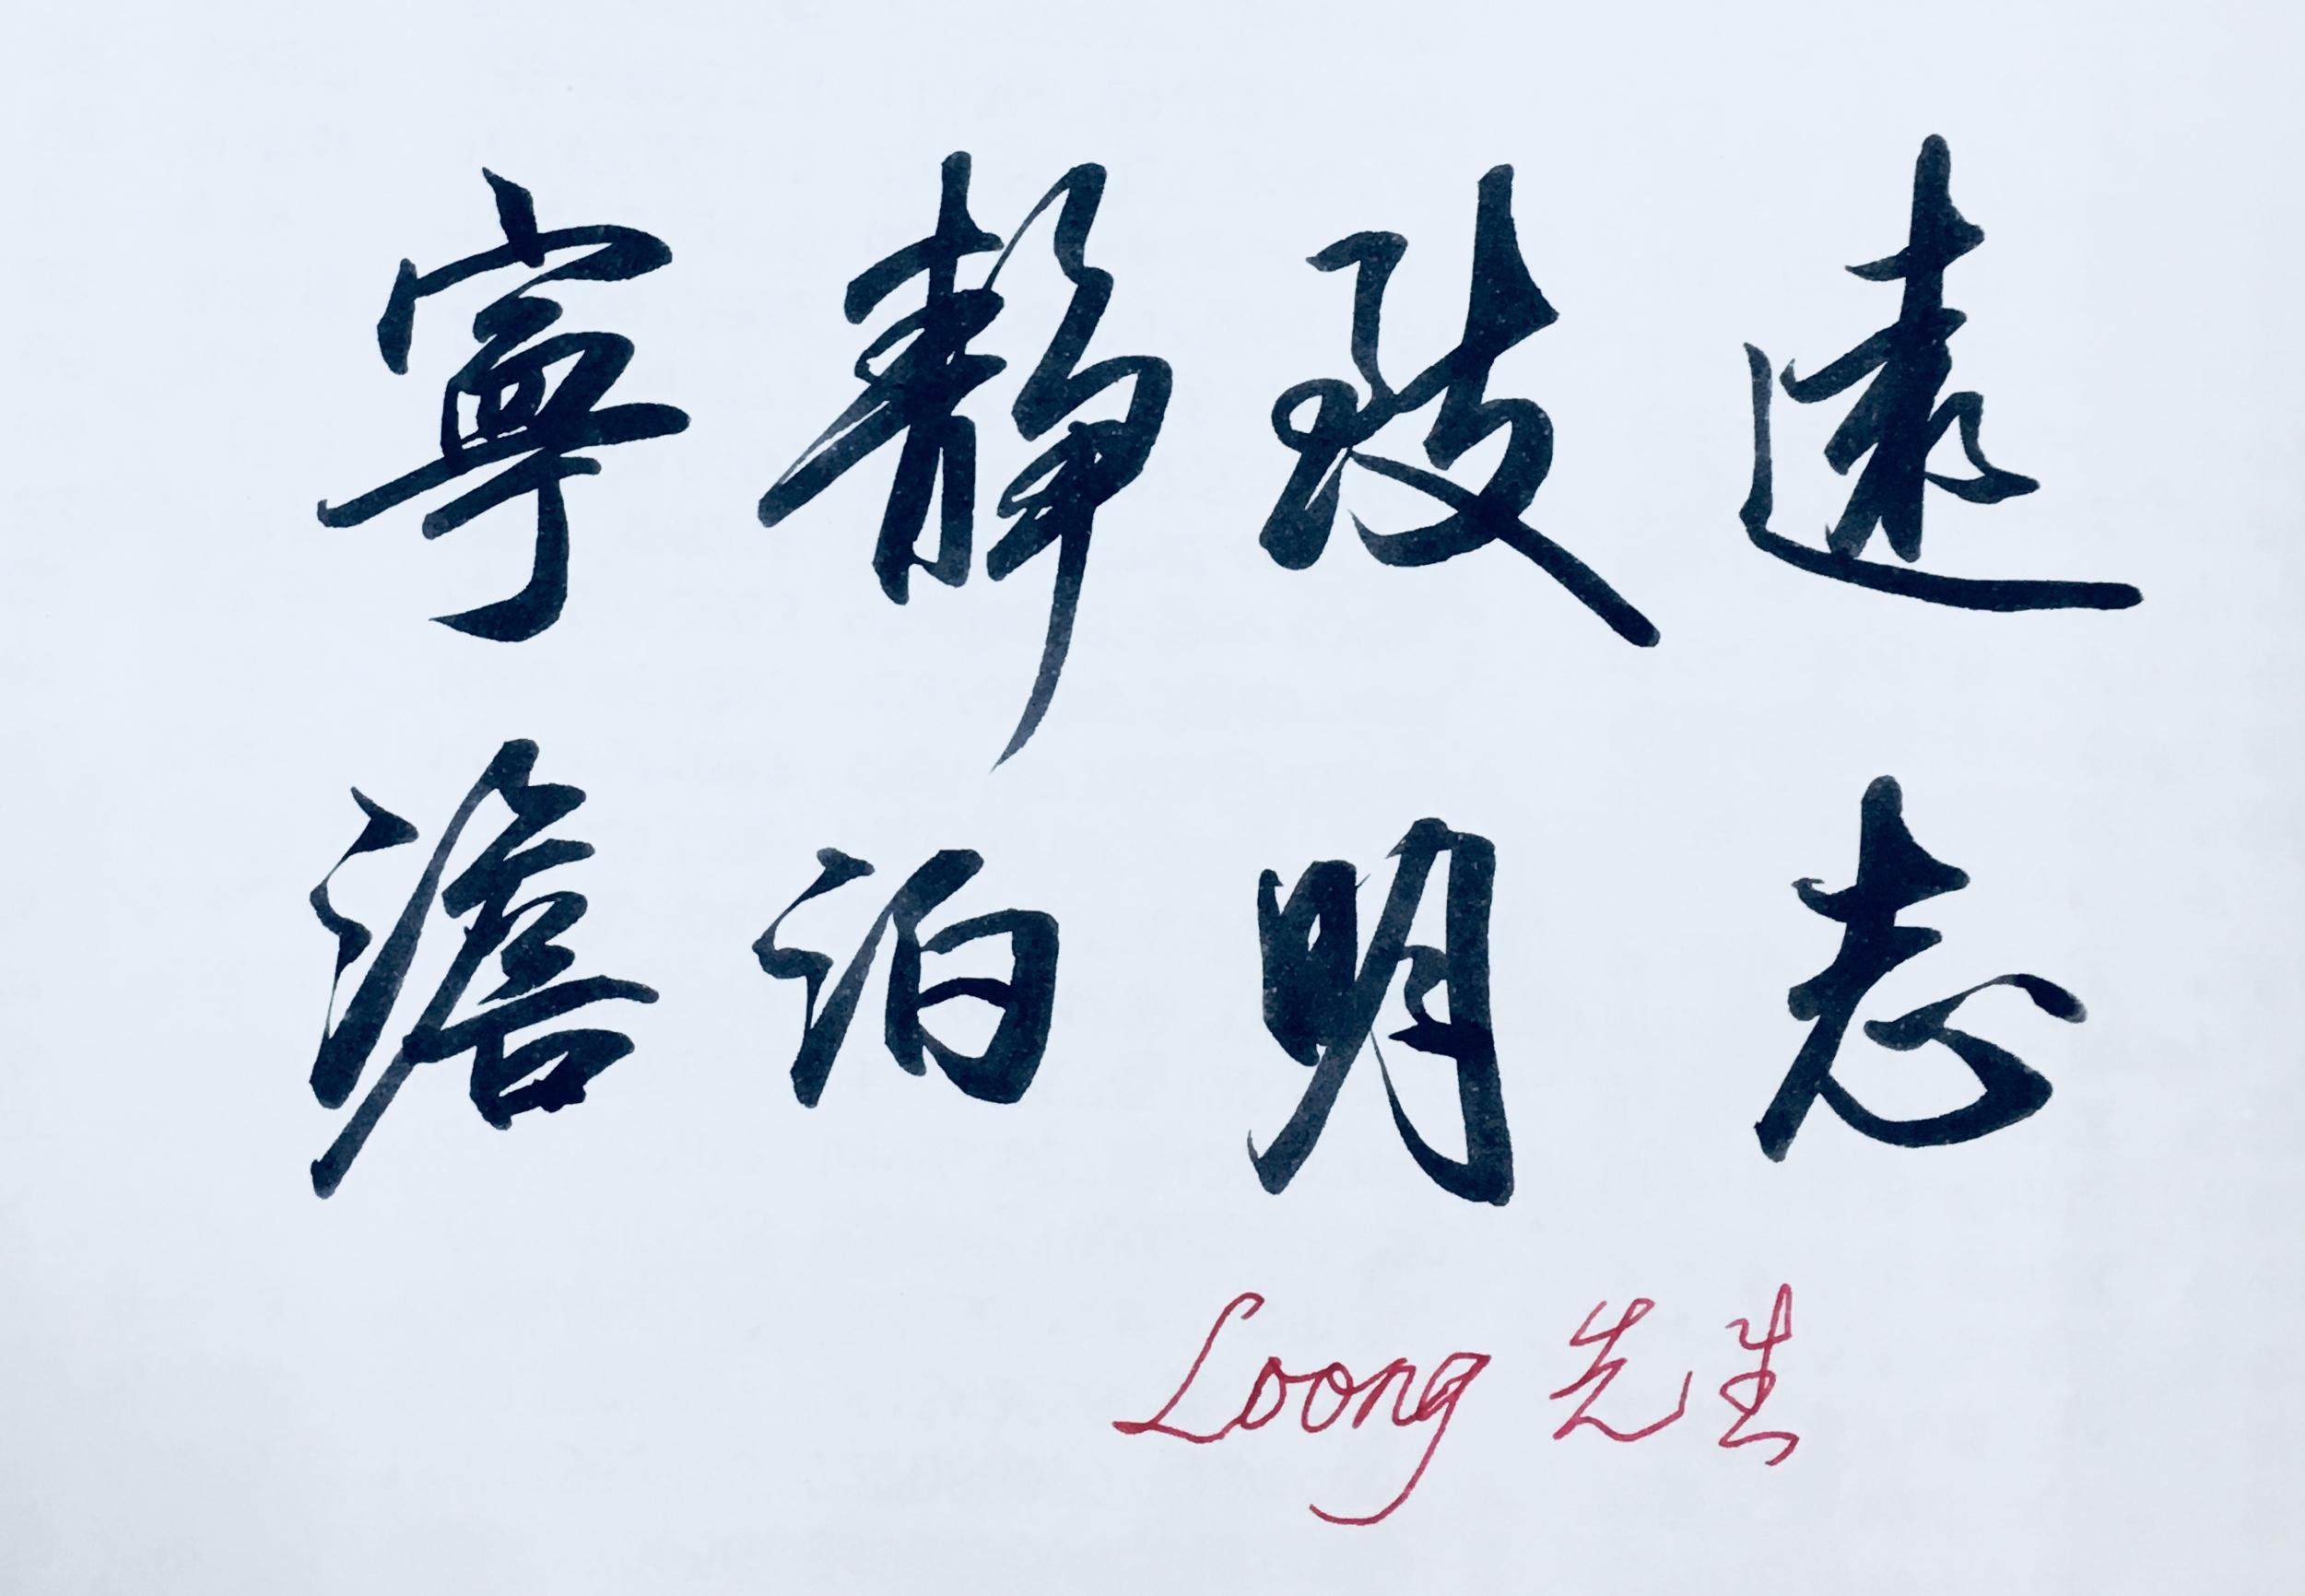 寧靜致遠
澹泊明志
Loong 先生